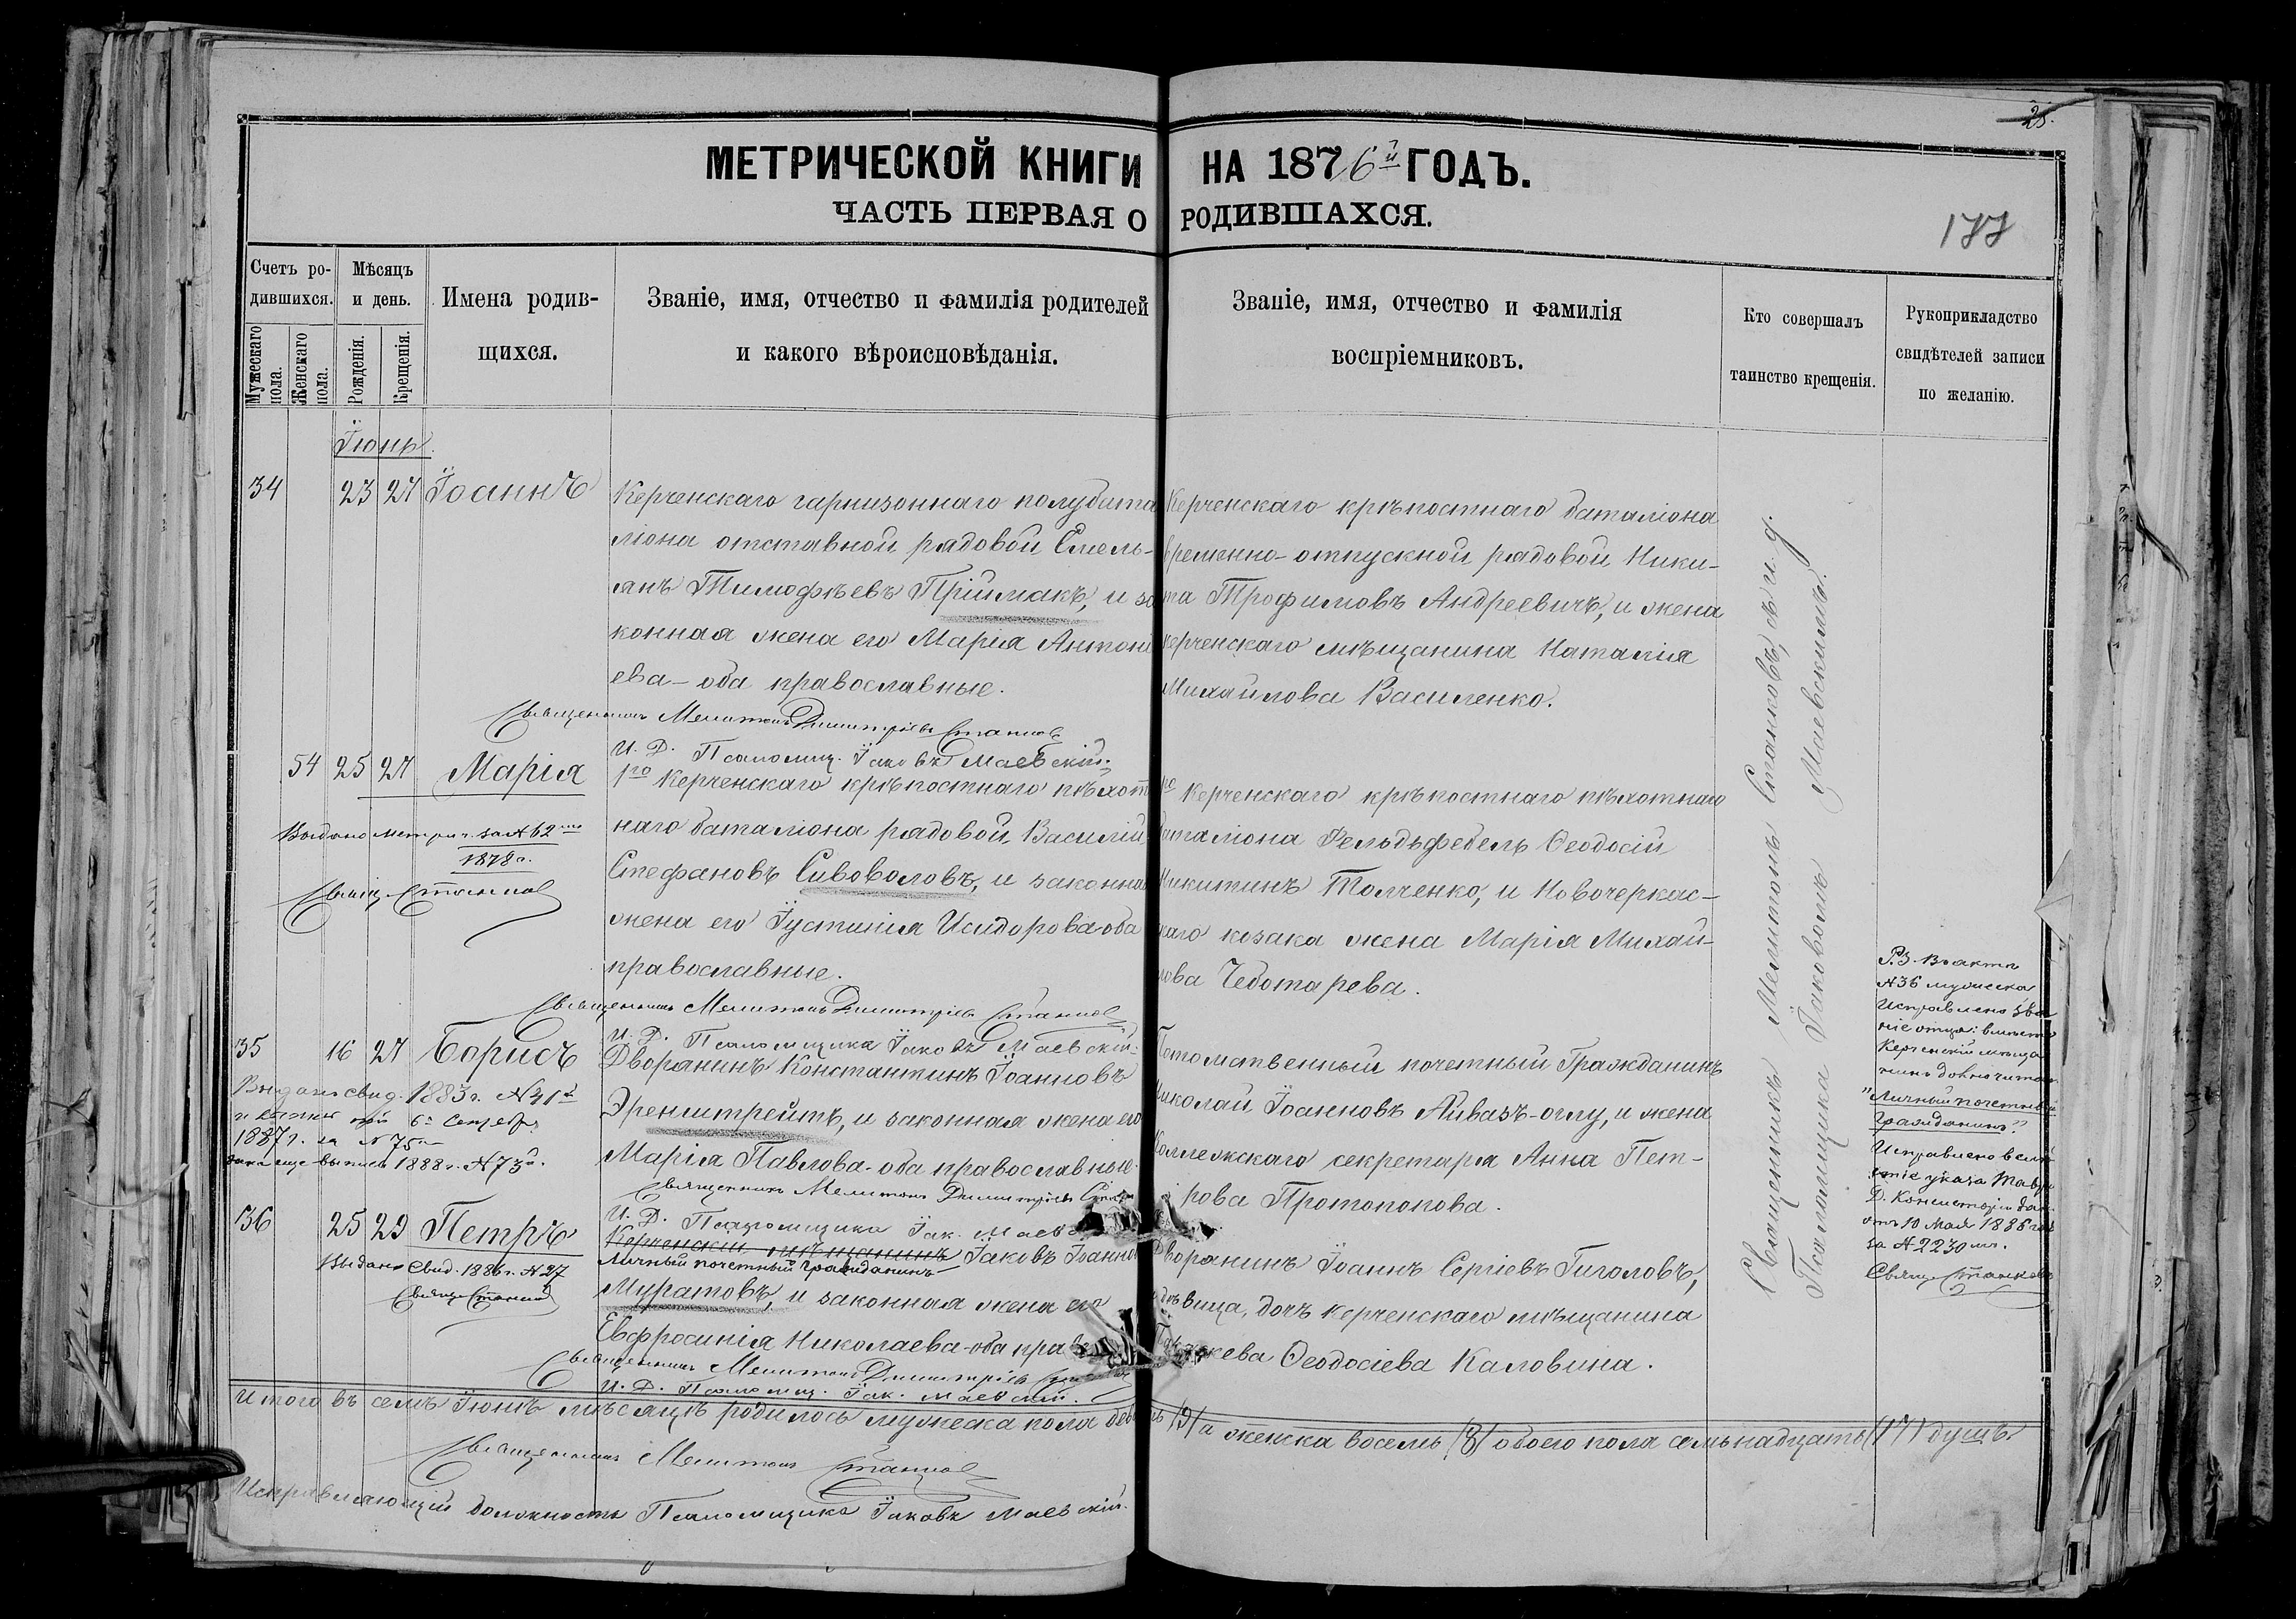 25.
МЕТРИЧЕСКОЙ КНИГИ НА 1876й ГОДЪ.
ЧАСТЬ ПЕРВАЯ О РОДИВШАХСЯ.
177
Счетъ ро-
дившихся.
Мужескаго пола.
Женскаго пола.
Мѣсяцъ
и день.
Рожденія.
Крещенія.
Имена родив-
щихся.
Званіе, имя, отчество и фамилія родителей
и какого вѣроисповѣданія.
Званіе, имя, отчество и фамилія
воспріемниковъ.
Кто совершалъ
таинство крещенія.
Рукоприкладство
свидѣтелей записи
по желанію.
Іюнь
34 23 27 Іоаннъ
Керченскаго гарнизоннаго полубата
ліона отставной рядовой Емель-
янъ Тимофѣевъ Пріймакъ, и за
конная жена его Марія Антоні
ева - оба православные.
Священникъ Мелитонъ Димитріевъ Станковъ
И. Д. Псаломщ. Іаковъ Маевскій.
Керченскаго крѣпостнаго баталіона
временно-отпускной рядовой Ники-
та Трофимовъ Андреевичъ, и жена
керченскаго мѣщанина Наталія
Михайлова Василенко.
54 25 27 Марія
Выдано метрич. за №62
1878 г.
Свящ. Станковъ
1го Керченскаго крѣпостнаго пѣхот
наго баталіона рядовой, Василій
Стефановъ Сивоволовъ, и законная
жена его Іустинія Исидорова-оба
православные.
Священникъ Мелитонъ Димитріевъ Станковъ
И. Д. Псаломщика Іаковъ Маевскій.
го Керченскаго крѣпостнаго пѣхотнаго
баталіона Фельдъфебель Ѳеодосій
Никитинъ Толченко, и Новочеркас-
каго козака жена Марія Михай-
лова Чеботарева.
35 16 27 Борисъ
Выдано свид. 1883 г. №41
1887 г. за №75
выпись 1888 г. №73
Дворянинъ Константинъ Іоанновъ
Эренштрейтъ, и законная жена его
Марія Павлова-оба православные.
Священникъ Мелитонъ Димитріевъ
И. Д. Псаломщика Іак. Маев
Потомственный почетный Гражданинъ
Николай Іоанновъ Айвазъ-оглу, и жена
Коллежскаго секретаря Анна Пет-
рова Протопопова.
36 25 29 Петръ
Выдано Свид. 1886 г. №27
Свящ. Станковъ
Керченскій мѣщанинъ Іаковъ Іоанно
Личный почетный гражданинъ
Муратовъ, и законная жена его
Евфросинія Николаева-оба прав
Священникъ Мелитонъ Димитріевъ Станковъ
И. Д. Псаломщ. Іак. Маевскій.
Дворянинъ Іоаннъ Сергіевъ Гиголовъ,
дѣвица, дочь керченскаго мѣщанина
Ѳеодосіева Каловина.
Священникъ Мелитонъ Станковъ, съ и. д.
Псаломщика Іаковомъ Маевскимъ.
Р.З. Въ актѣ
№36 мужеска
Исправлено зва
ніе отца: вмѣсто
Керченскій мѣща
нинъ должно читать
"Личный почетный
гражданинъ"
Исправлено вслѣд
ствіе указа Тавр.
Д. Консисторіи
отъ 10 Мая 1886 года
за №2230
Свящ. Станковъ
Итого въ семъ Іюнѣ мѣсяцѣ родилось мужеска пола девять (9) а женска восемь (8) обоего пола семьнадцать (17) душъ.
Священникъ Мелитонъ Станковъ
Исправляющій должность Псаломщика Іаковъ Маевскій.